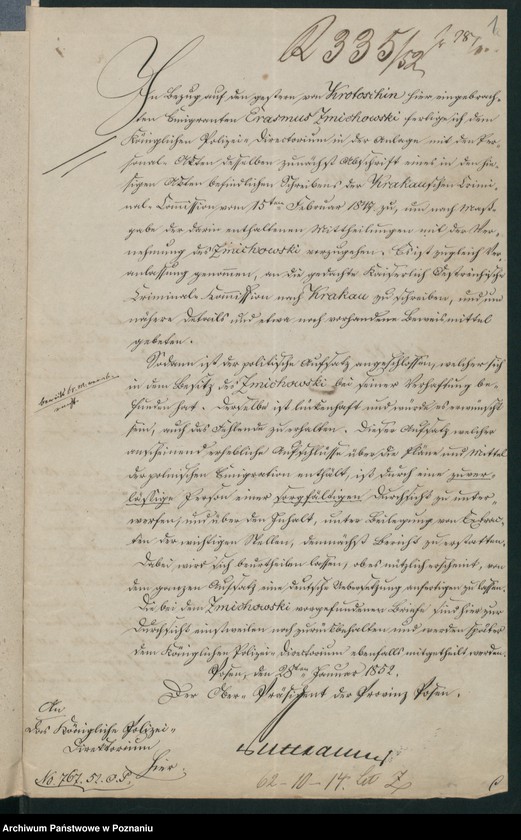 R 335/52
1
In Bezug auf den gestern von Krotoschin hier eingebrach-
ten Emigranten Erasmus Zmichowski fertige ich dem
Königlichen Polizei-Directorium in der Anlage mit den Per-
sonal-Akten desselben zunächst Abschrift eines in den hie-
sigen Akten befindlichen Schreibens der Krakauschen Crimi-
nal-Commission vom 15ten Februar 1847 zu, um nach Maß-
gabe der darin enthaltenen Mittheilungen mit der Ver-
nehmung des Zmichowski vorzugehen. Es ist zugleich Ver-
anlassung genommen, an die gedachte Kaiserlich Oestreichische
Criminal-Commission nach Krakau zu schreiben, und um
nähere Details und etwa noch vorhandene Beweismittel
gebeten.
Sodann ist der politische Aufsatz angeschlossen, welcher sich
in dem Besitz des Zmichowski bei seiner Verhaftung be-
funden hat. Derselbe ist lückenhaft und würde es erwünscht
sein, auch das Fehlende zu erhalten. Dieser Aufsatz welcher
anscheinend erhebliche Aufschlüsse über die Pläne und Mittel
der polnischen Emigration enthält, ist durch eine zuver-
lässige Person einer sorgfältigen Durchsicht zu unter-
werfen, und über den Inhalt, unter Beilegung von Extrac-
ten der wichtigen Stellen, demnächst Bericht zu erstatten.
Dabei wird sich beurtheilen lassen, ob es nützlich erscheint, von
dem ganzen Aufsatz eine deutsche Uebersetzung anfertigen zu lassen.
Die bei dem Zmichowski vorgefundenen Briefe sind hier zur
Durchsicht einstweilen noch zurückbehalten und werden später
dem Königlichen Polizei-Directorium ebenfalls mitgetheilt werden.
Posen, den 28ten Januar 1852.
Der Ober-Präsident der Provinz Posen.
An
Das Königliche Polizei-
Direktorium
Hier.
No 767.52. O.P.
62-10-14. Z
Archiwum Państwowe w Poznaniu